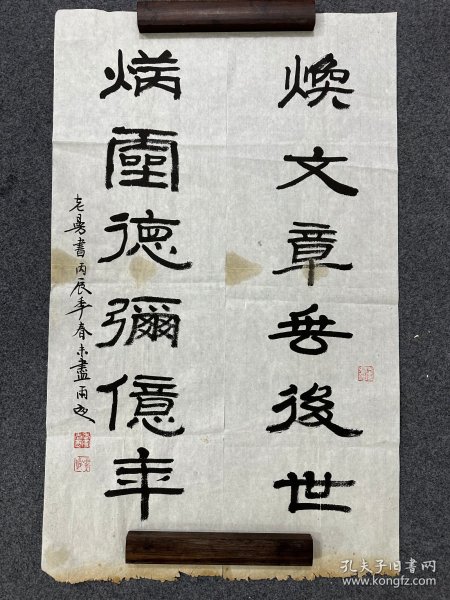 煥文章垂後世
炳靈德彌億年
書丙辰年春未盡雨
孔夫子旧书网
www.kongfz.com